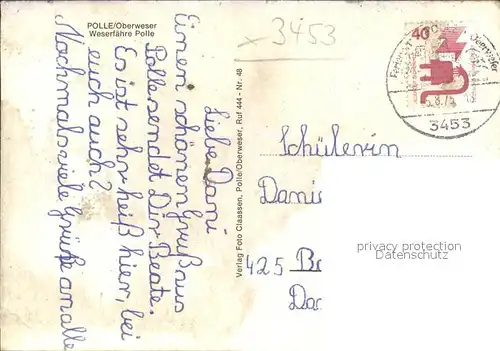 POLLE/Oberweser
Weserfähre Polle
x 3453
Liebe Dani
Einen schönen Gruß aus
Polle sendet Dir Beate.
Es ist sehr heiß hier, bei
euch auch?
Nochmals viele Grüße an alle
Verlag Foto Claassen, Polle/Oberweser, Ruf 444 - Nr. 48
40
Oberweser
3453
Schülerin
425
privacy protection
Datenschutz